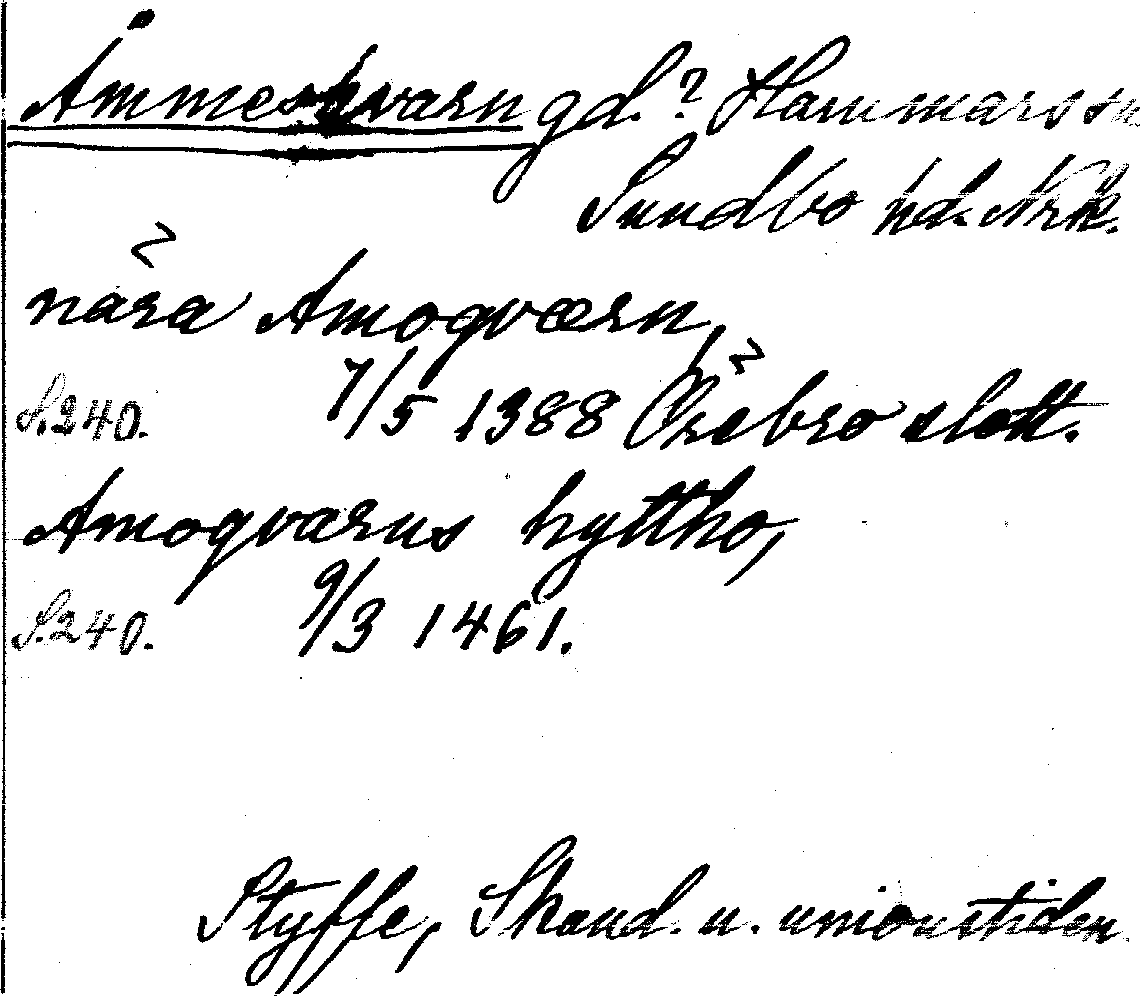 Åmmeskvarn gd.? Hammars sn
Sundbo hd. Nrk.
nåra Amoqværn,
S. 240. 7/5 1388 Örebro slott.
Amoqvarns hyttho,
S. 240. 9/3 1461.
Styffe, Skand. u. unionstiden